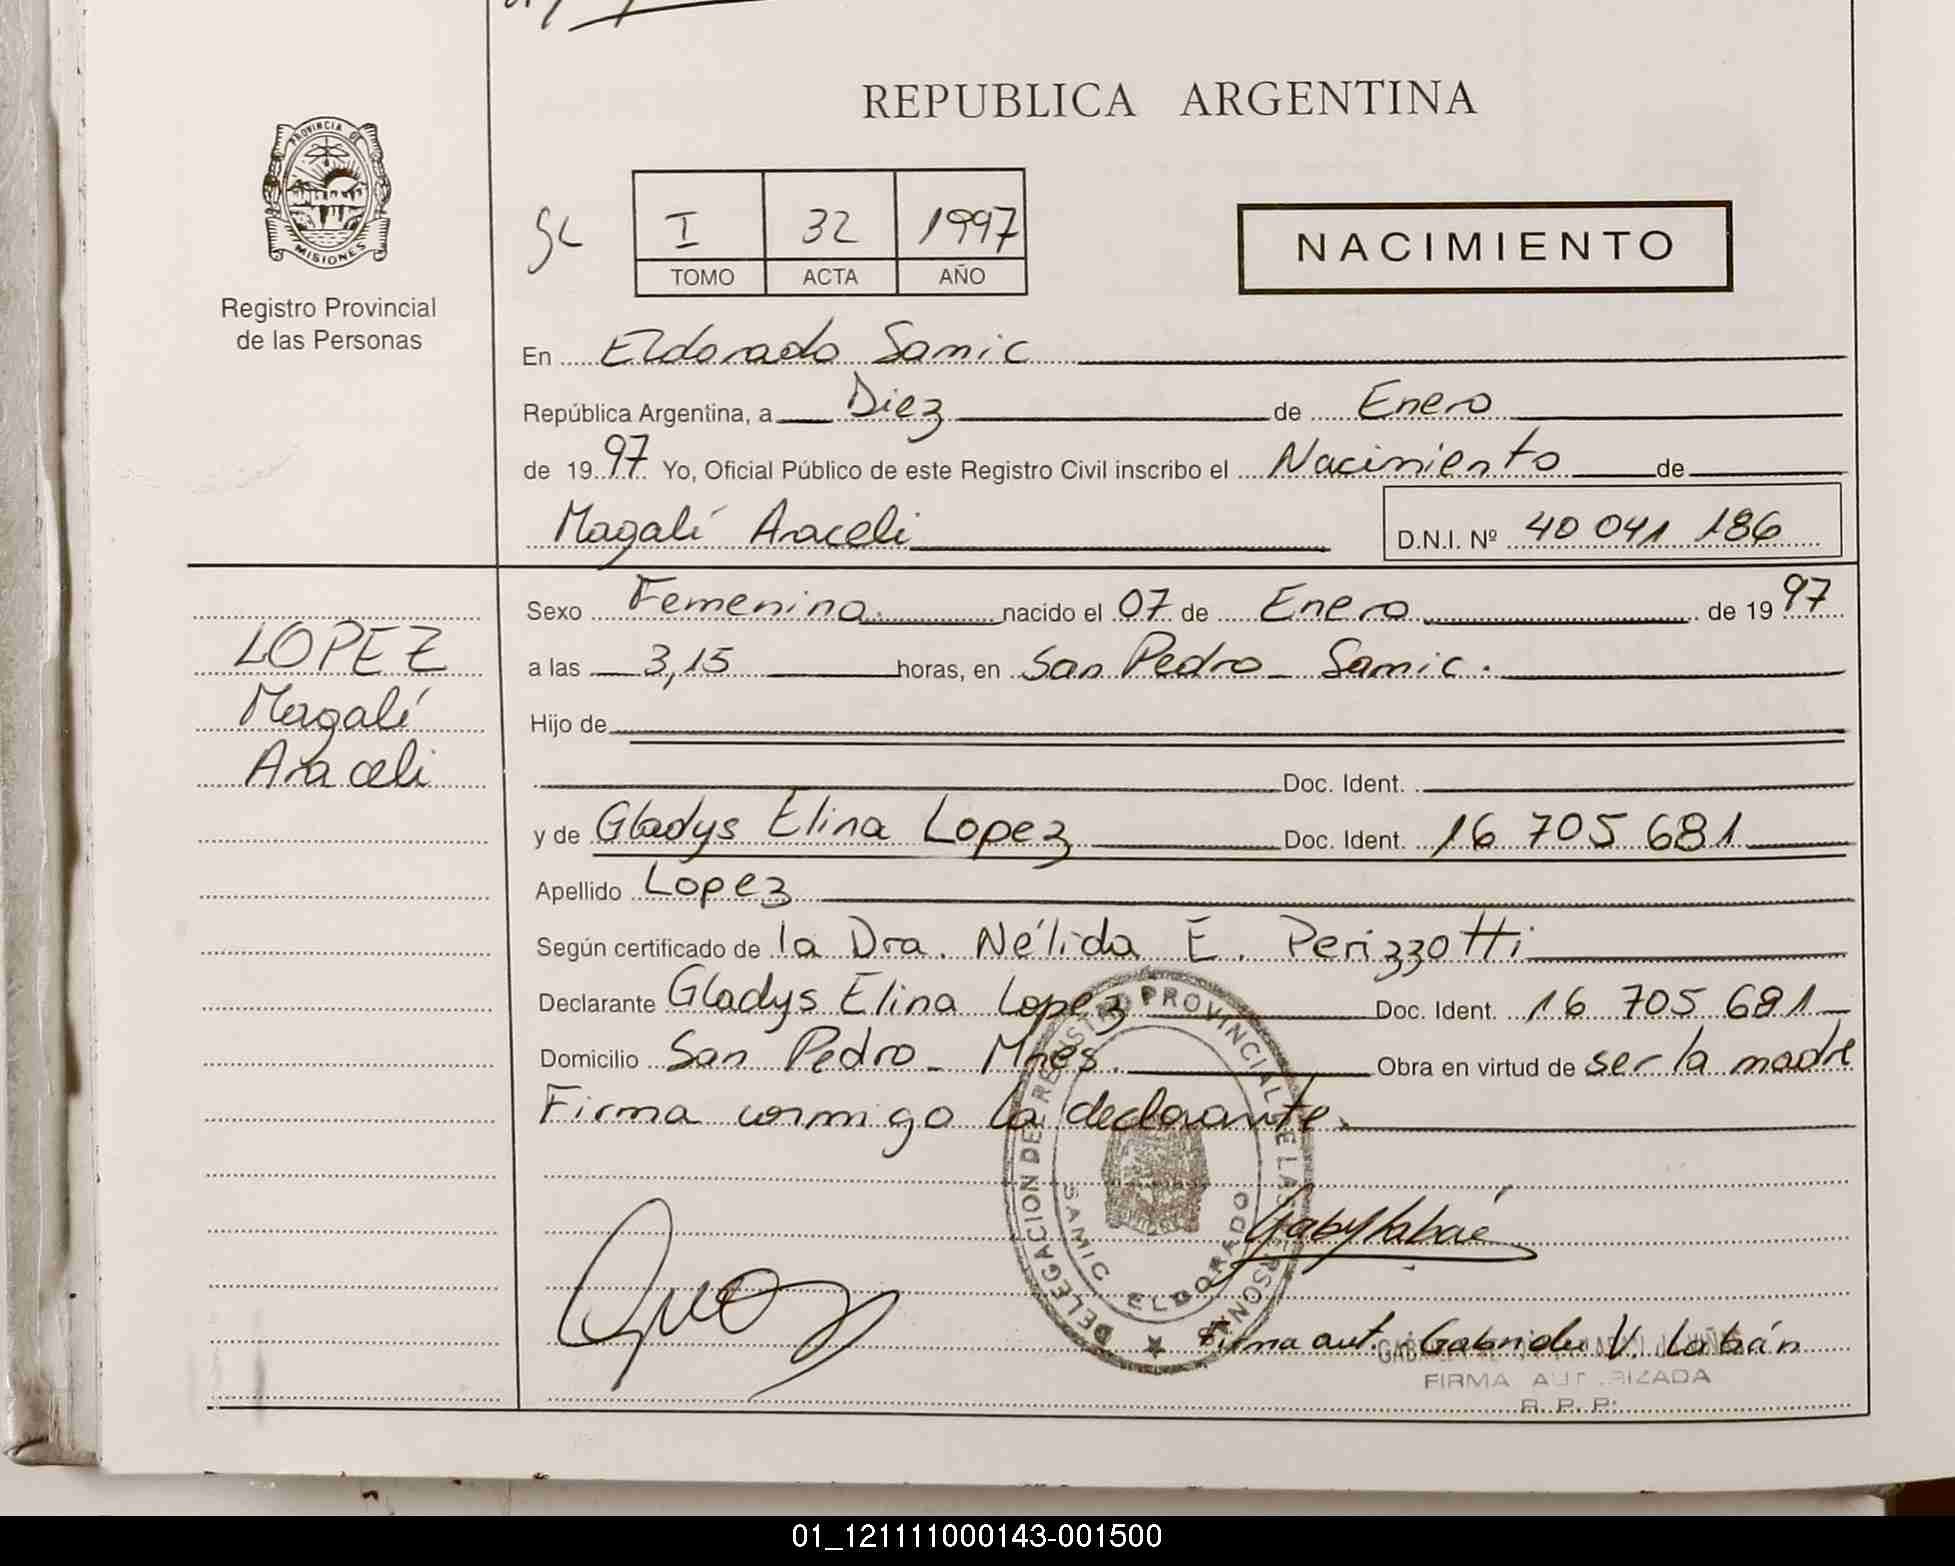 REPUBLICA ARGENTINA
PROVINCIA DE
MISIONES
Registro Provincial
de las Personas
I 32 1997
TOMO ACTA AÑO
NACIMIENTO
En Eldorado Samic
República Argentina, a Diez de Enero
de 1997 Yo, Oficial Público de este Registro Civil inscribo el Nacimiento de
Magalí Araceli D.N.I. Nº 40 041 186
LOPEZ
Magalí
Araceli
Sexo Femenino. nacido el 07 de Enero de 1997
a las 3,15 horas, en San Pedro - Samic.
Hijo de
Doc. Ident.
y de Gladys Elina Lopez Doc. Ident. 16 705 681
Apellido Lopez
Según certificado de la Dra. Nélida E. Perizzotti
Declarante Gladys Elina Lopez Doc. Ident. 16 705 681
Domicilio San Pedro - Mnes. Obra en virtud de ser la madre
Firma conmigo la declarante.
DELEGACION DEL REGISTRO PROVINCIAL DE LAS PERSONAS
SAMIC ELDORADO
Firma aut. Gabriela V. Labán
FIRMA AUTORIZADA
R. P. P.
01_121111000143-001500